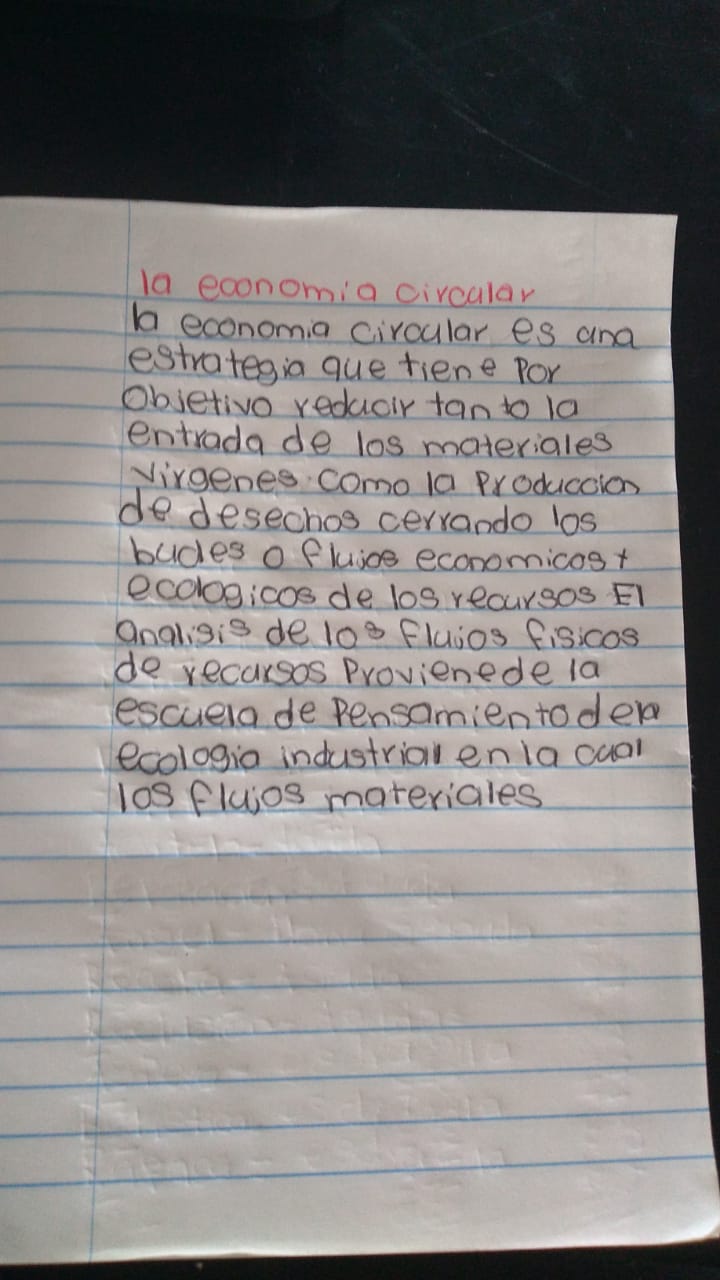 la economia circular
la economia circular es una
estrategia que tiene Por
Objetivo reducir tanto la
entrada de los materiales
Virgenes como la Produccion
de desechos cerrando los
bucles o flujos economicos y
ecologicos de los recursos El
analisis de los flujos fisicos
de recursos Proviene de la
escuela de Pensamiento de la
ecologia industrial en la cual
los flujos materiales